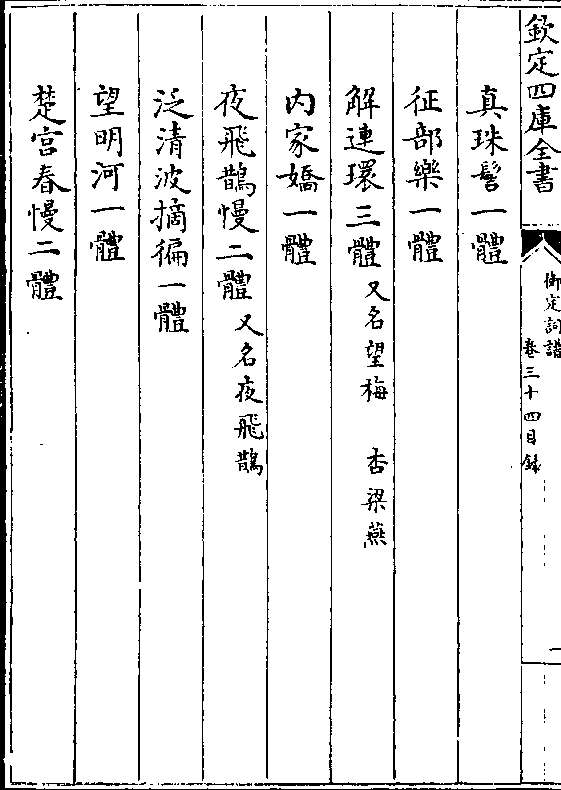 欽定四庫全書
御定詞譜
卷三十四目錄
一
真珠髻一體
征部樂一體
解連環三體 又名望梅 杏梁燕
内家嬌一體
夜飛鵲慢二體 又名夜飛鵲
泛清波摘徧一體
望明河一體
楚宫春慢二體